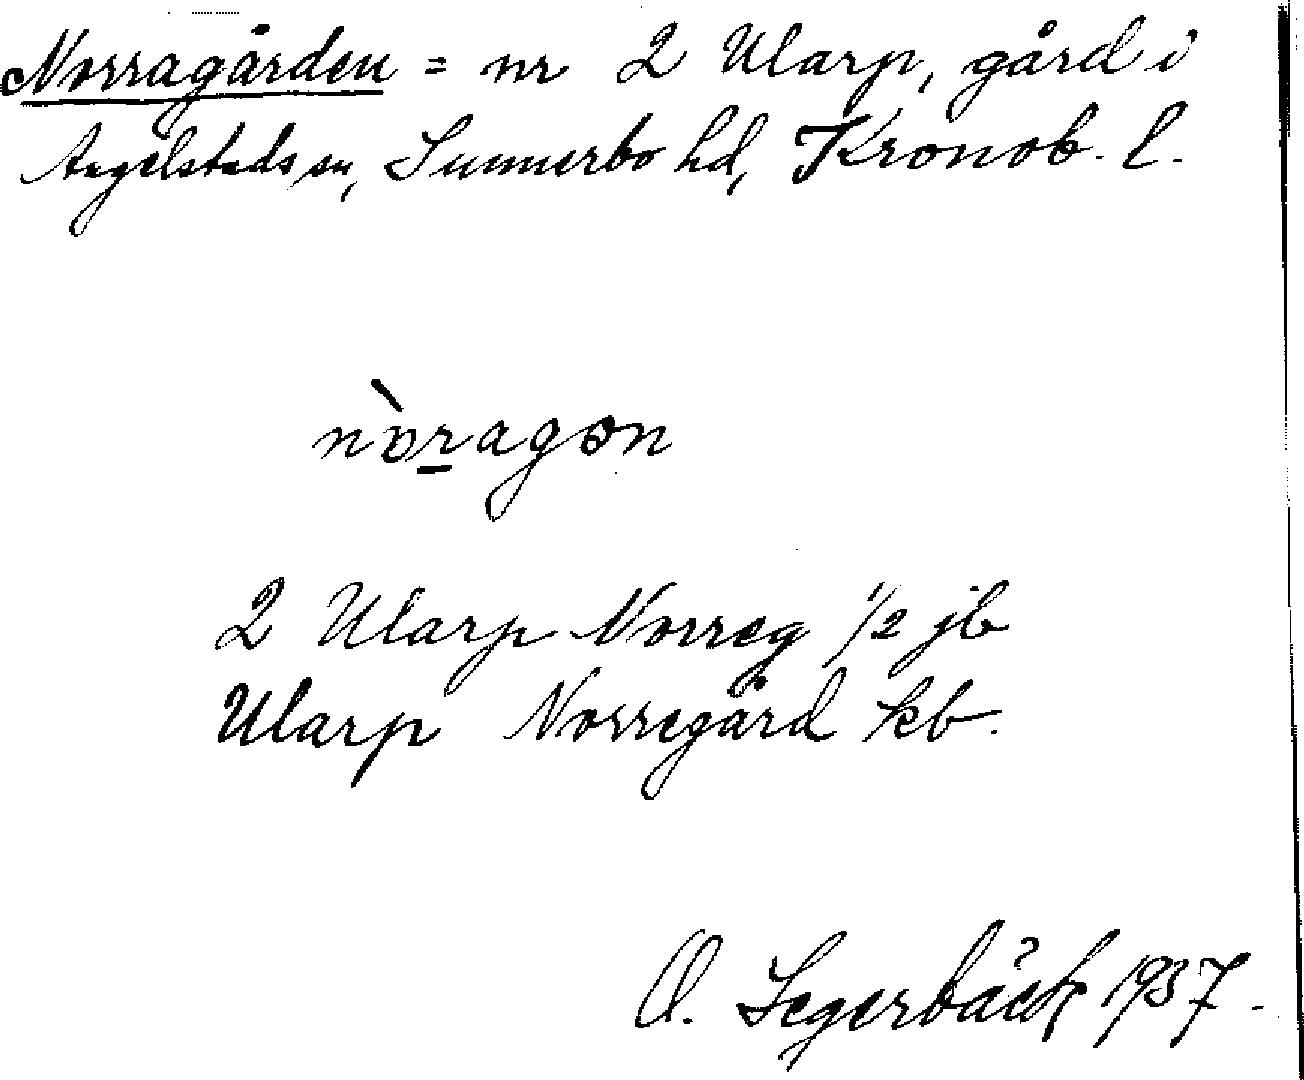 Norragården = nr 2 Ularp, gård i
Angelstads sn, Sunnerbo hd, Kronob. l.
nòragɔn
2 Ularp Norreg 1/2 jb
Ularp Norregård kb.
O. Segerbäck 1937.